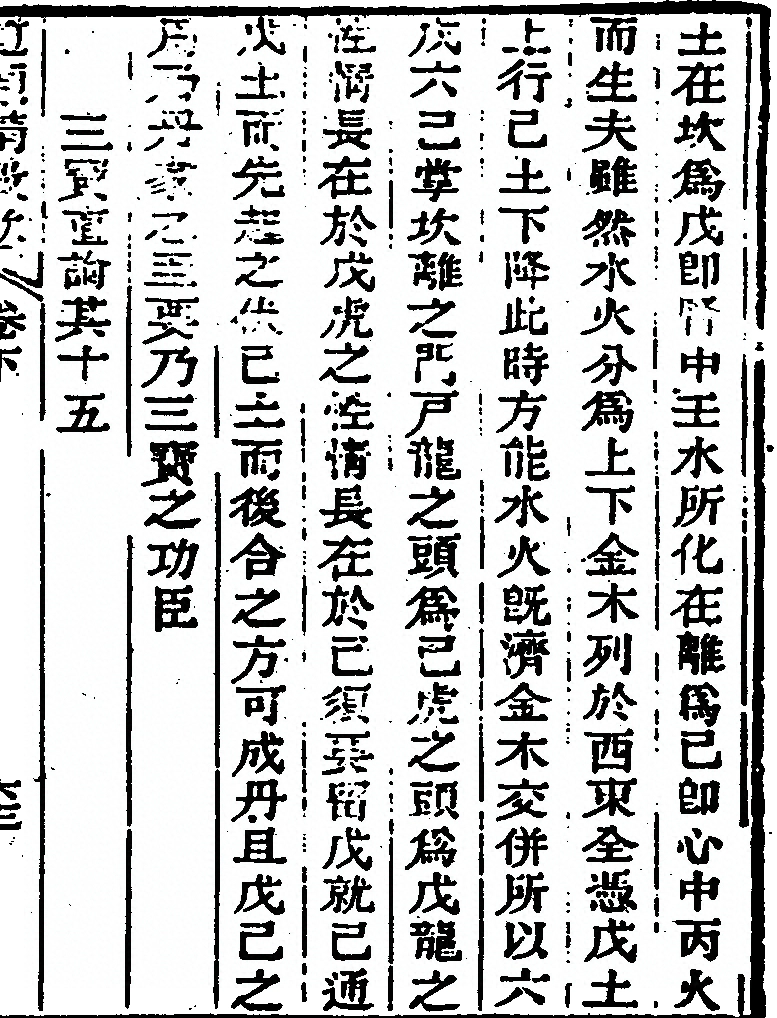 土在坎爲戊卽腎中壬水所化在離爲己卽心中丙火
而生夫雖然水火分爲上下金木列於西東全憑戊土
上行己土下降此時方能水火旣濟金木交併所以六
戊六己掌坎離之門戸龍之頭爲己虎之頭爲戊龍之
性情長在於戊虎之性情長在於己須要留戊就己通
戊土而先起之伏己土而後合之方可成丹且戊己之
用乃丹家之至要乃三寶之功臣
三寶直論其十五
卷下